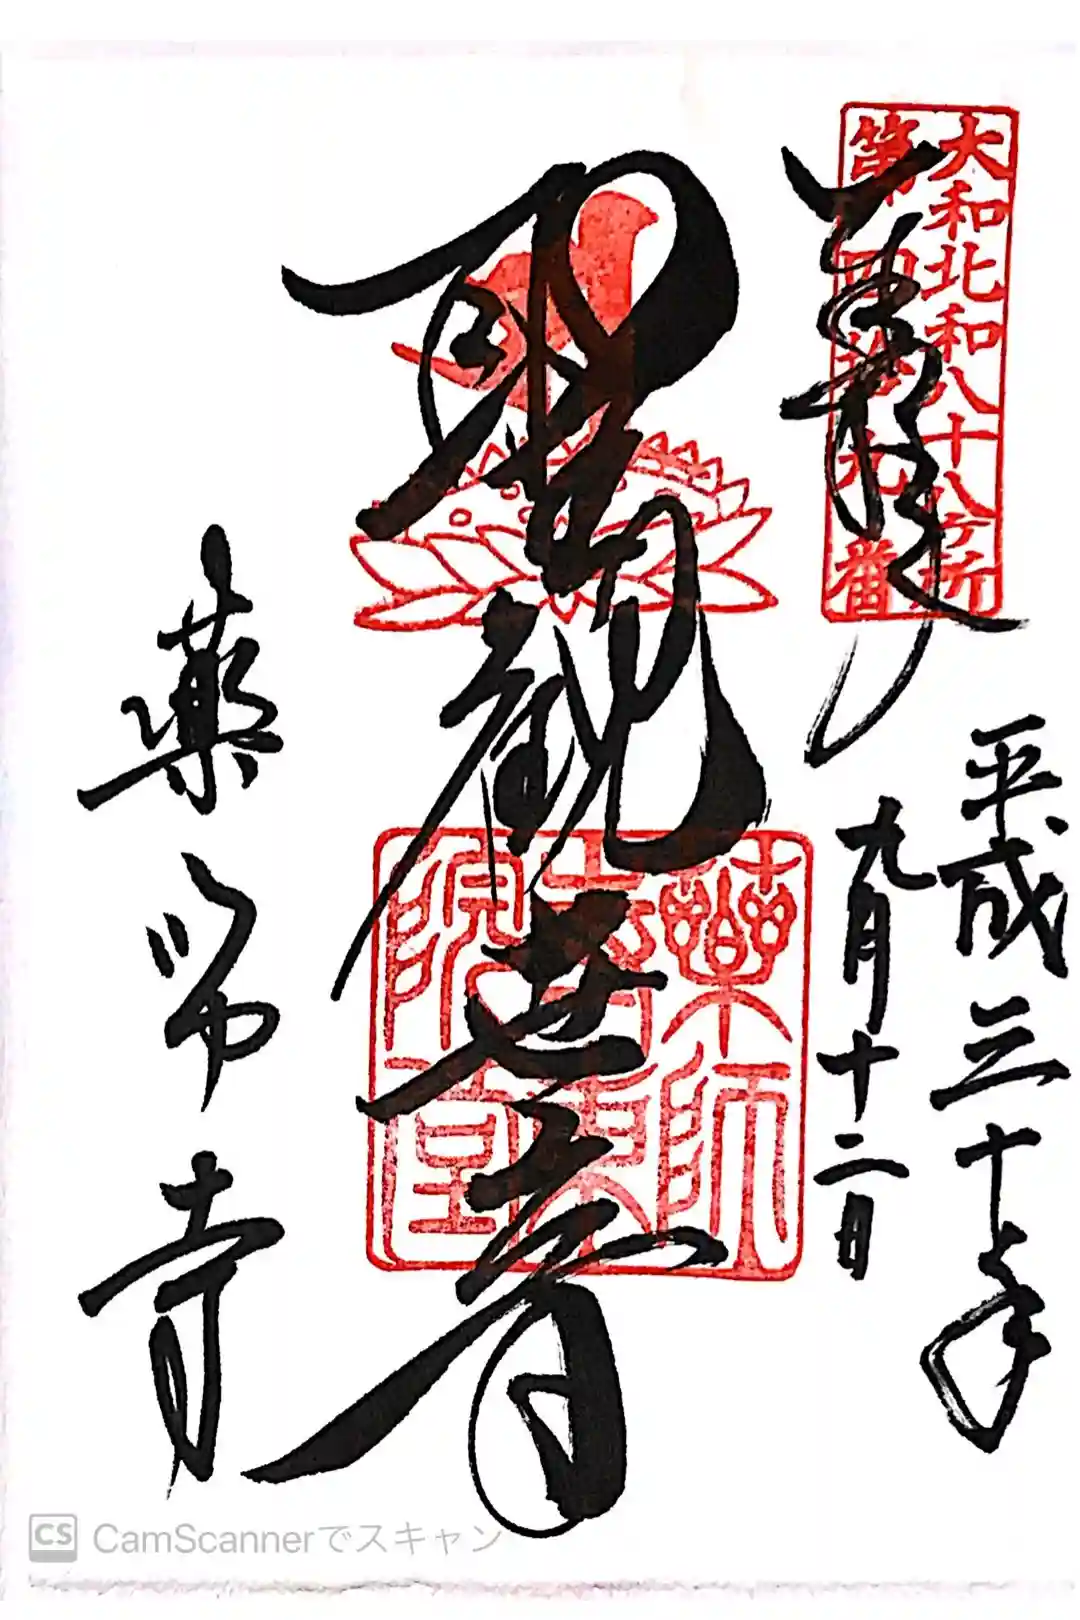 大和北和八十八ヶ所
第四拾九番
奉拝
平成三十年
九月十二日
聖観世音
薬師寺
薬師
東
院堂
CS CamScannerでスキャン